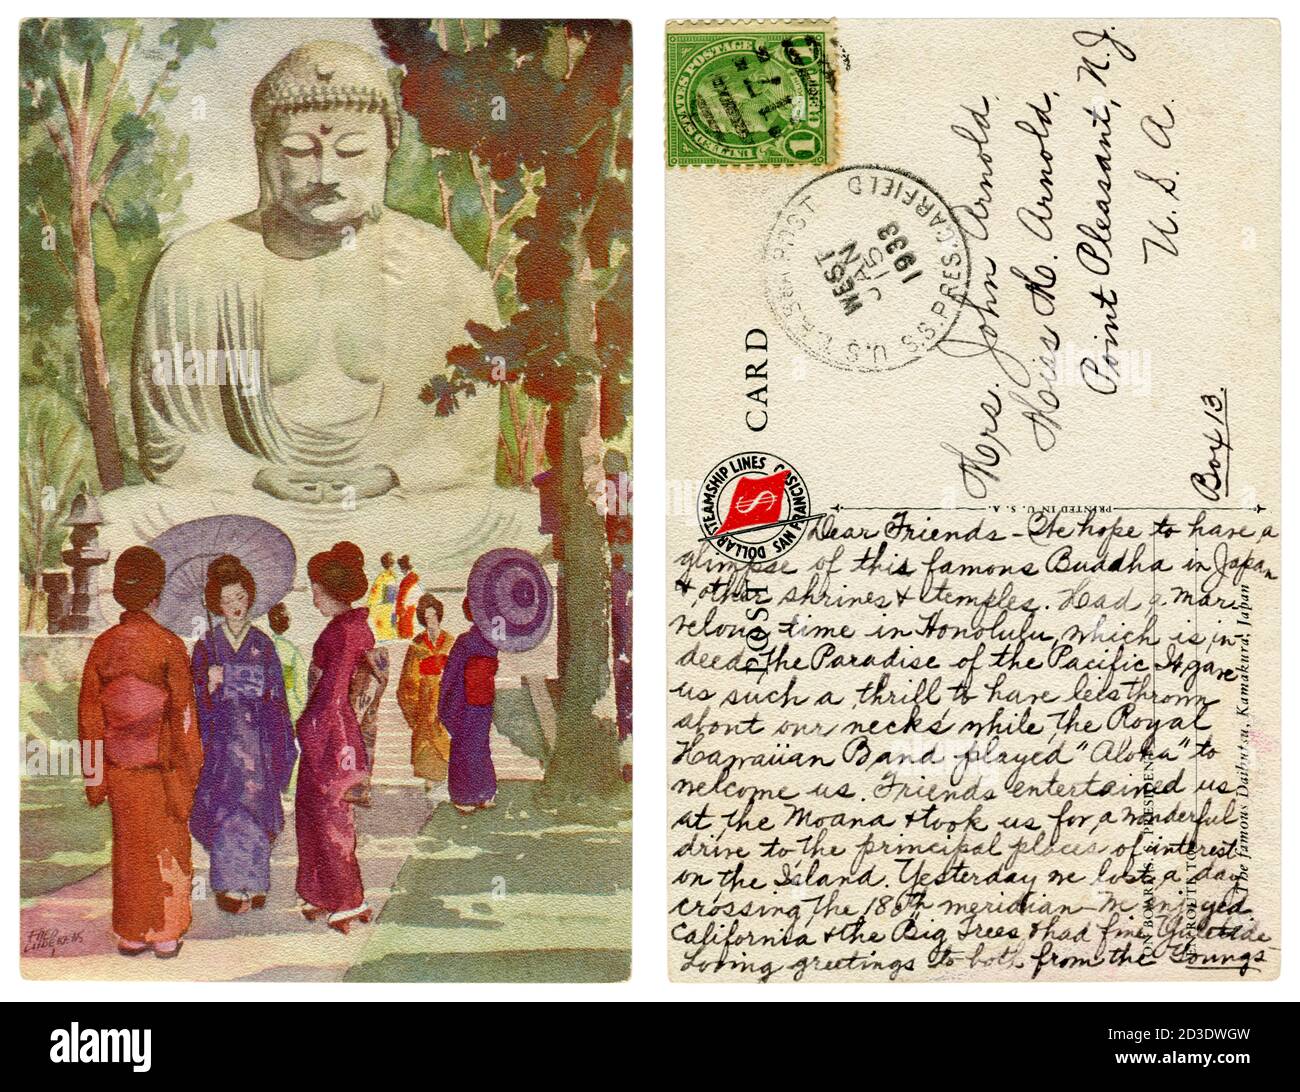 FRED
LUDEKENS
UNITED STATES POSTAGE
1
1
U.S. SEA POST
S.S. PRES. GARFIELD
WEST
JAN
15
1933
Mrs. John Arnold,
M. Arnold,
Point Pleasant, N.J.
U. S. A.
Box 13.
POST CARD
DOLLAR STEAMSHIP LINES
SAN FRANCISCO
$
PRINTED IN U. S. A.
ON BOARD S.S. PRESIDENT
EN ROUTE TO
The famous Daibutsu, Kamakura, Japan
Dear Friends – We hope to have a
glimpse of this famous Buddha in Japan
& other shrines & temples. Had a mar-
velous time in Honolulu, which is in-
deed the Paradise of the Pacific. It gave
us such a thrill to have leis thrown
about our necks while the Royal
Hawaiian Band played "Aloha" to
welcome us. Friends entertained us
at the Moana & took us for a wonderful
drive to the principal places of interest
on the Island. Yesterday we lost a day
crossing the 180th meridian – enjoyed
California & the Big Trees & had fine Yuletide
Loving greetings to both from the Youngs
alamy
Image ID: 2D3DWGW
www.alamy.com